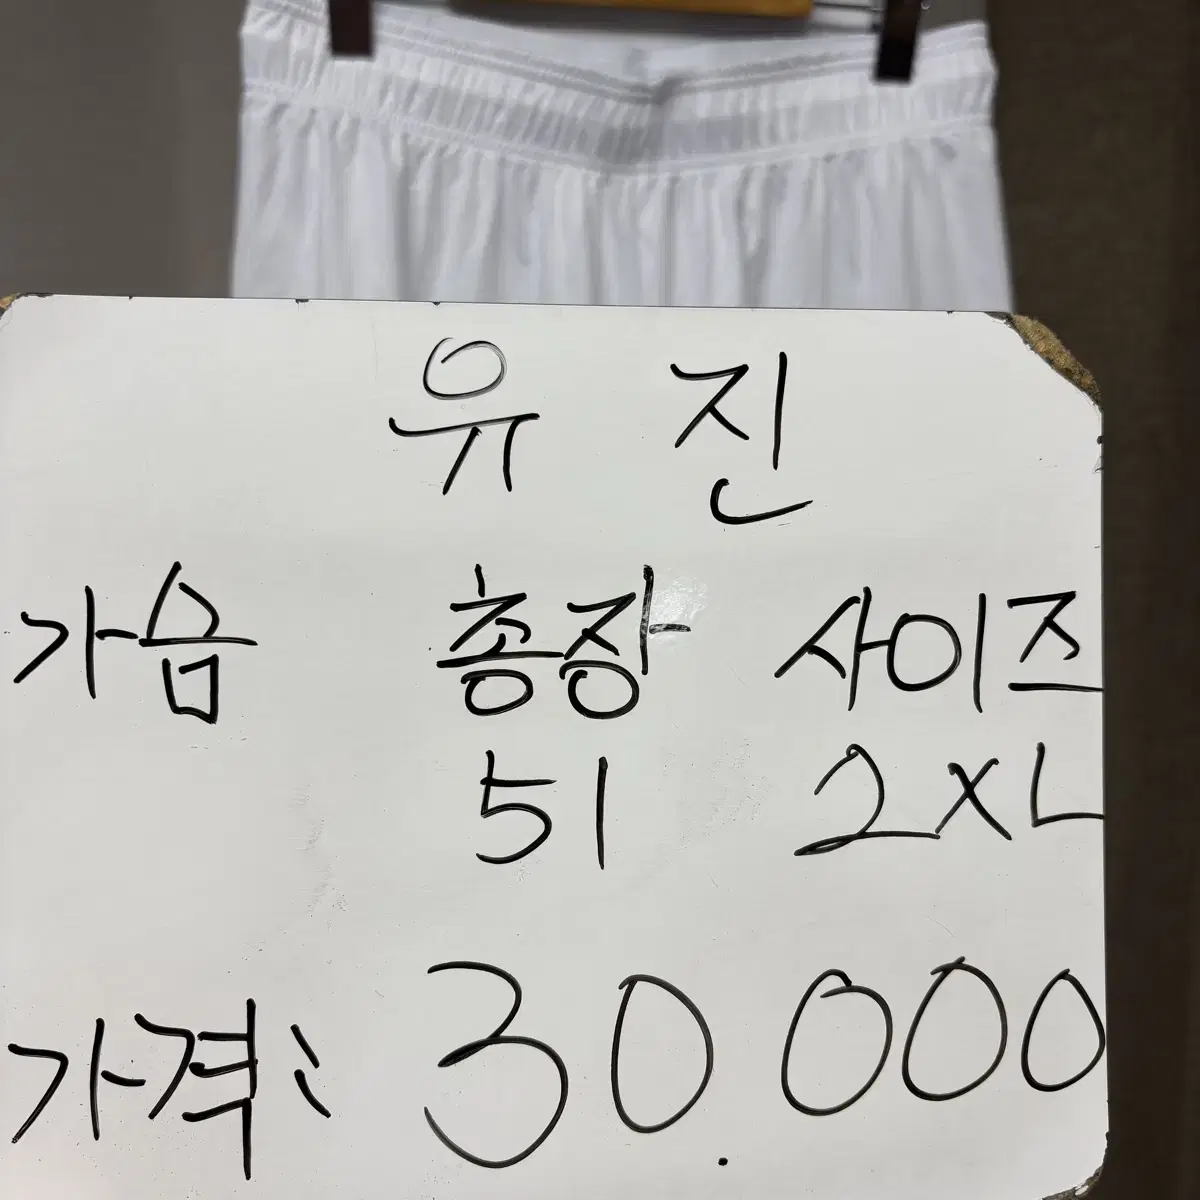 유 진
가슴 총장 사이즈
51 2XL
가격: 30.000